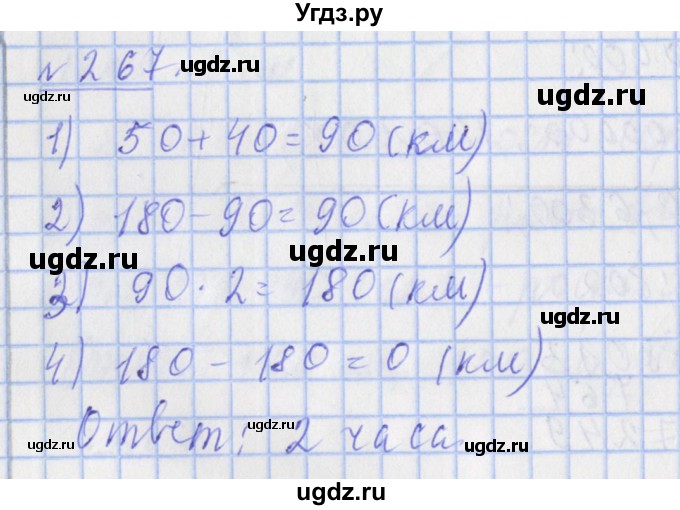 Угдз.ру
№267.
ugdz.ru
ugdz.ru
ugdz.ru
1) 50+40=90(км)
ugdz.ru
2) 180-90=90(км)
ugdz.ru
ugdz.ru
3) 90·2=180(км)
ugdz.ru
ugdz.ru
4) 180-180=0 (км)
Ответ: 2 часа
ugdz.ru
ugdz.ru
ugdz.ru
ugdz.ru